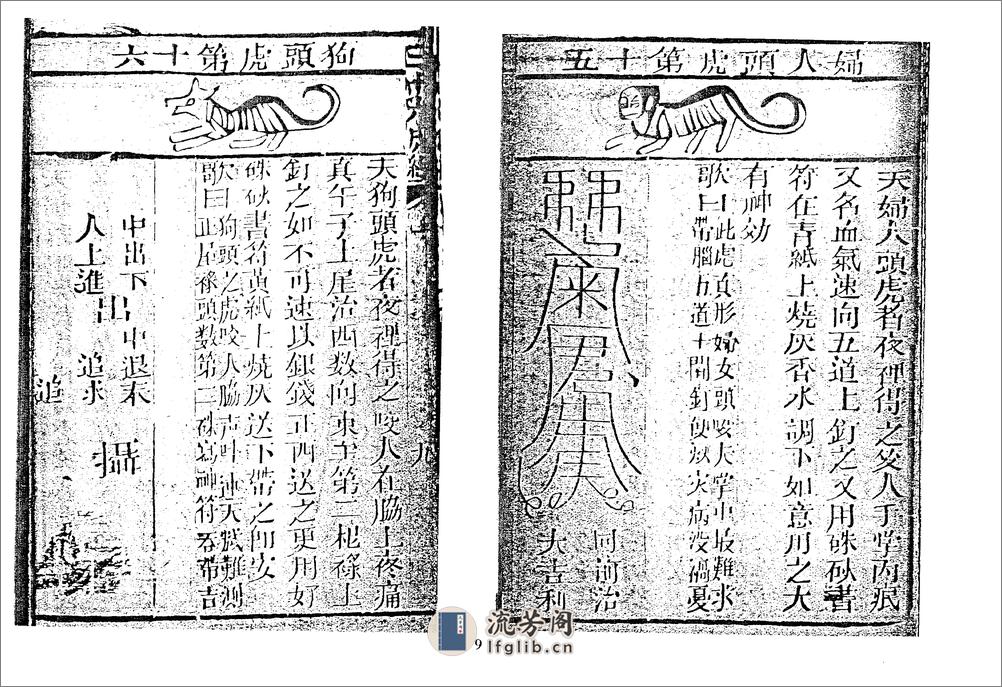 婦人頭虎第十五
夫婦人頭虎者夜裡得之咬人手掌內痕
又名血氣速向五道上釘之又用硃砂書
符在青紙上燒灰香水調下如意用之大
有神效
次曰此虎真形婦女頭咬人掌中最難求
歌曰帶腦五道士間釘使愁大病没禍憂
治
大吉利
狗頭虎第十六
夫狗頭虎者夜裡得之咬人在脇上疼痛
真午子上尾治西数向東至第二根椽上
釘之如不可速以銀錢正西送之更用好
硃砂書符黃紙上燒灰送下帶之即安
次曰狗頭之虎咬人脇声叫連天賊難測
歌曰正尾椽頭数第二硃寫神符吞帶吉
中出下 中退末
出
人上進 追求
攝
追
九
流芳阁
lfglib.cn
9